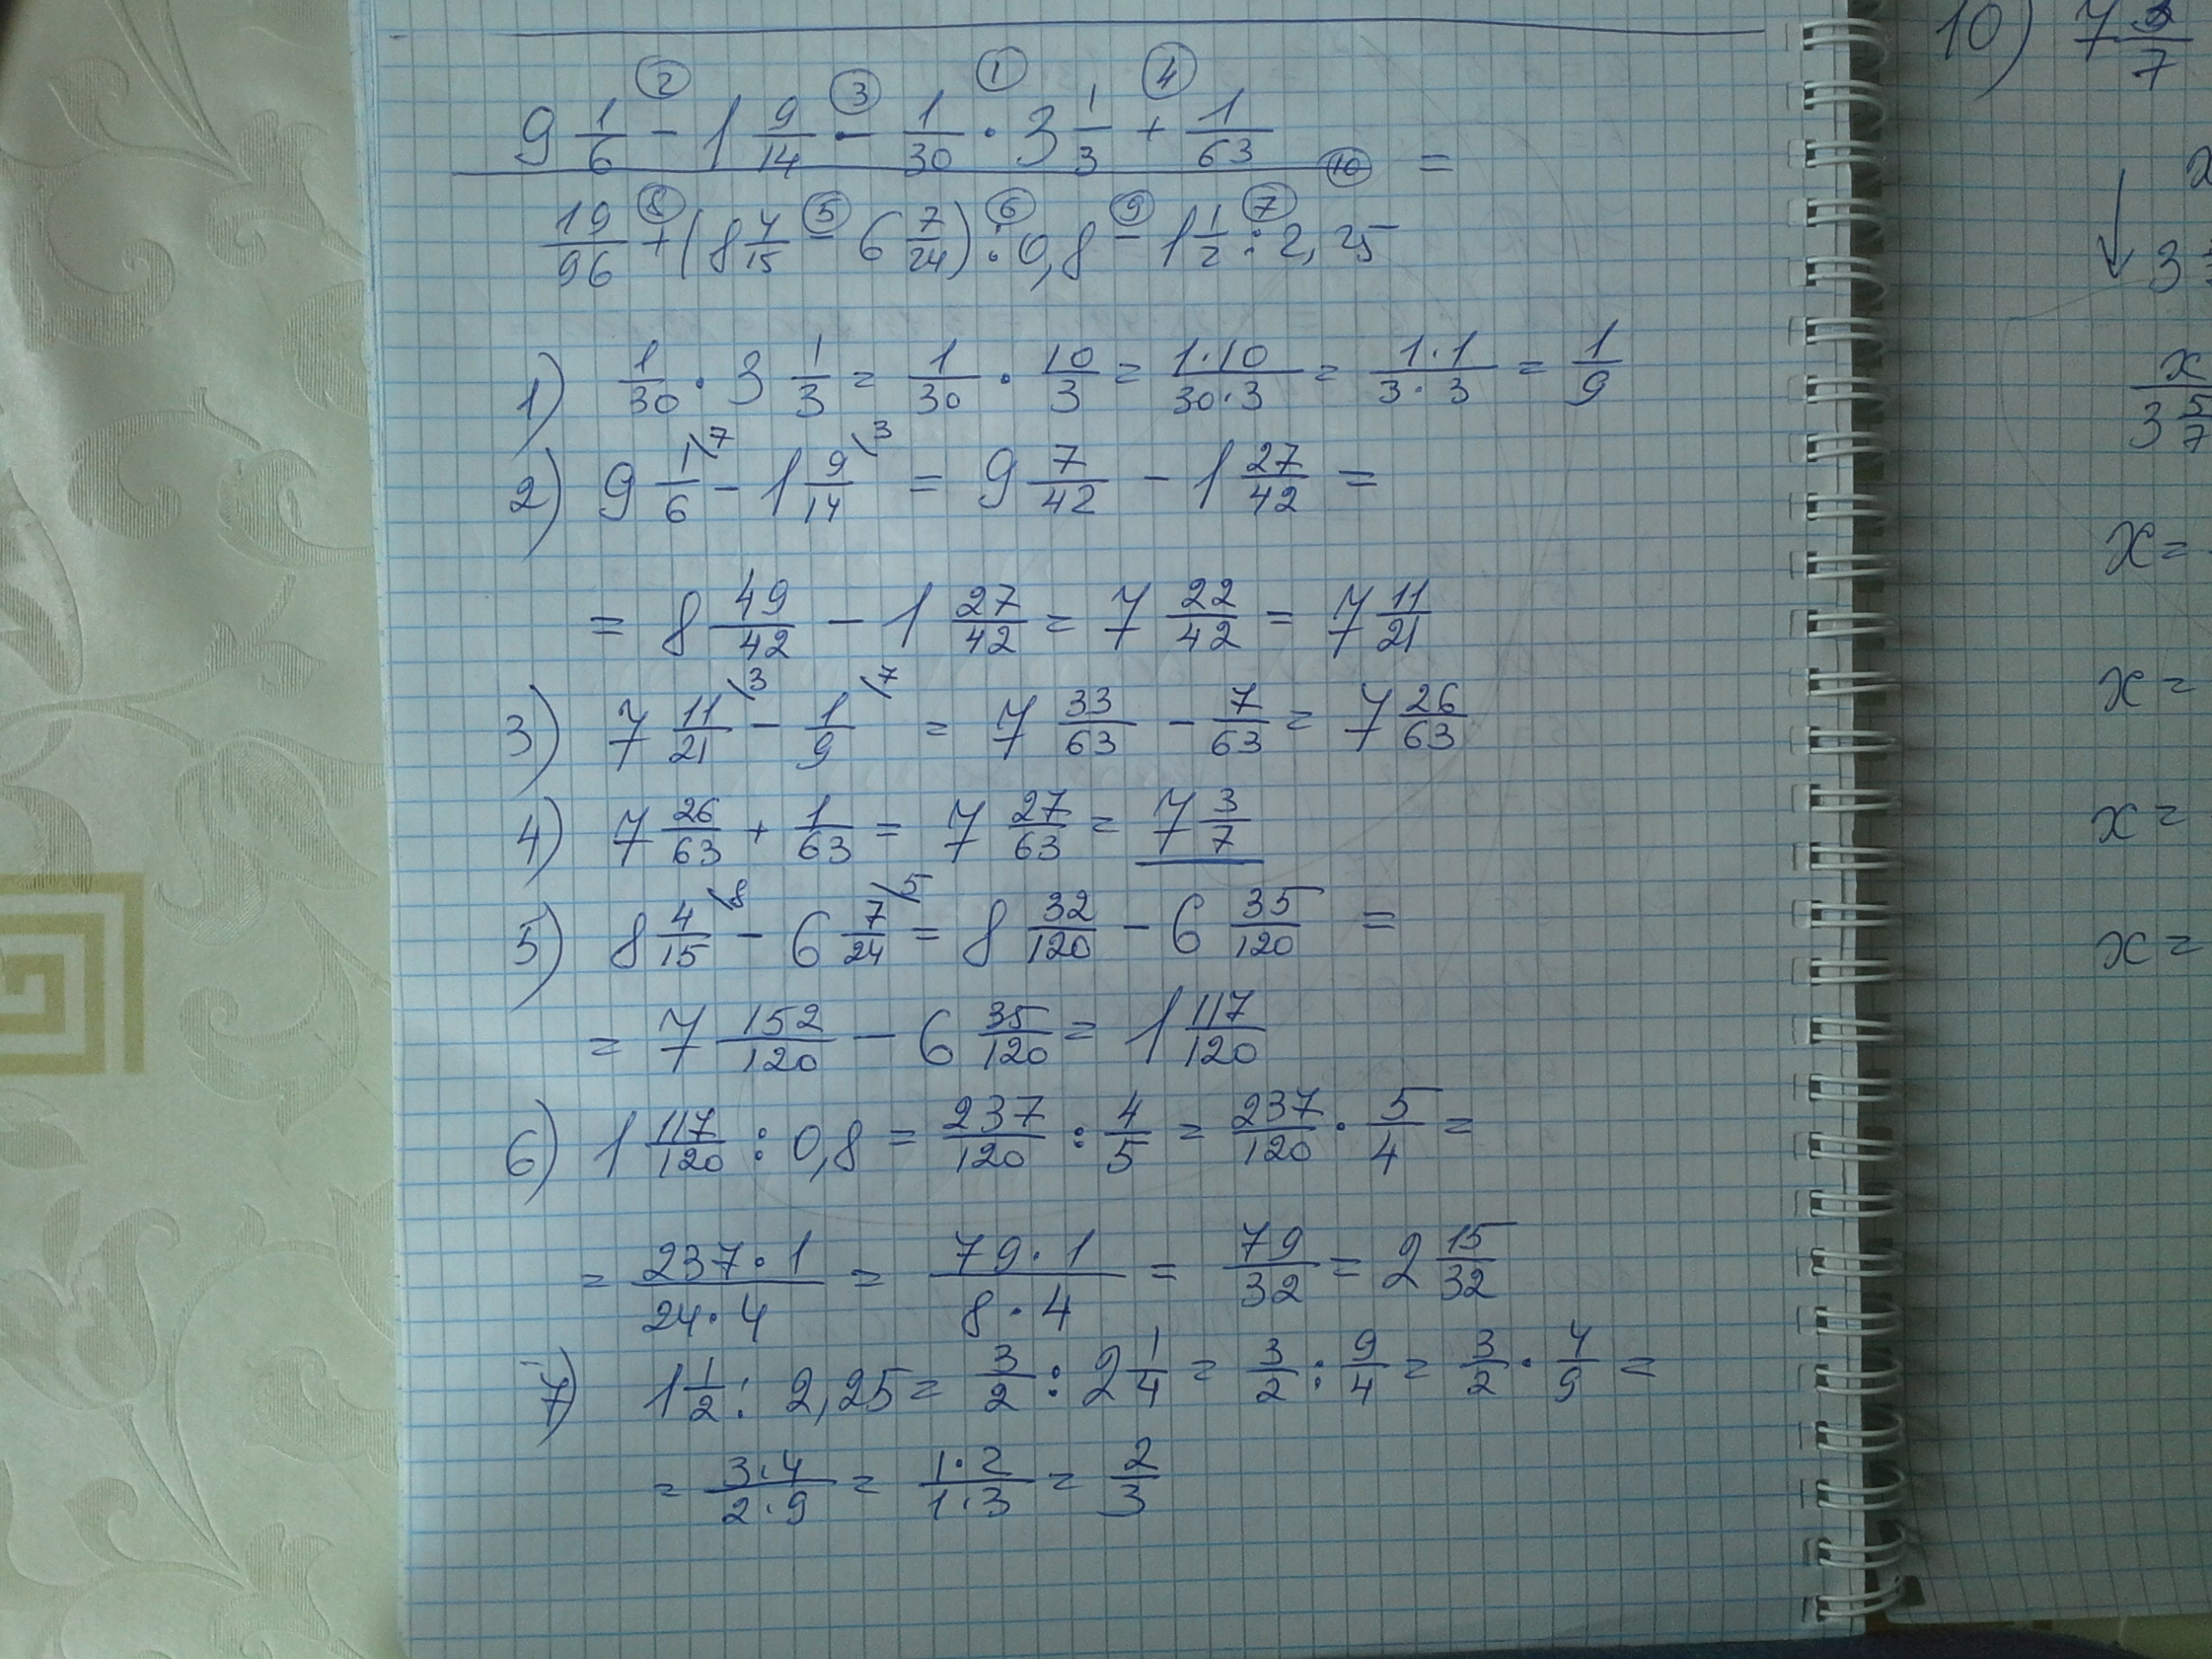 ② ③ ① ④
9 1/6 - 1 9/14 - 1/30 · 3 1/3 + 1/63 =
⑧ ⑤ ⑥ ⑨ ⑦ ⑩
19/96 + (8 4/15 - 6 7/24) : 0,8 - 1 1/2 : 2,25
1) 1/30 · 3 1/3 = 1/30 · 10/3 = 1·10/30·3 = 1·1/3·3 = 1/9
2) 9 1/6 \7 - 1 9/14 \3 = 9 7/42 - 1 27/42 =
= 8 49/42 - 1 27/42 = 7 22/42 = 7 11/21
3) 7 11/21 \3 - 1/9 \7 = 7 33/63 - 7/63 = 7 26/63
4) 7 26/63 + 1/63 = 7 27/63 = 7 3/7
5) 8 4/15 \8 - 6 7/24 \5 = 8 32/120 - 6 35/120 =
= 7 152/120 - 6 35/120 = 1 117/120
6) 1 117/120 : 0,8 = 237/120 : 4/5 = 237/120 · 5/4 =
= 237·1/24·4 = 79·1/8·4 = 79/32 = 2 15/32
7) 1 1/2 : 2,25 = 3/2 : 2 1/4 = 3/2 : 9/4 = 3/2 · 4/9 =
= 3·4/2·9 = 1·2/1·3 = 2/3
10) 7 3/7
x/3 5/7
x=
x=
x=
x=